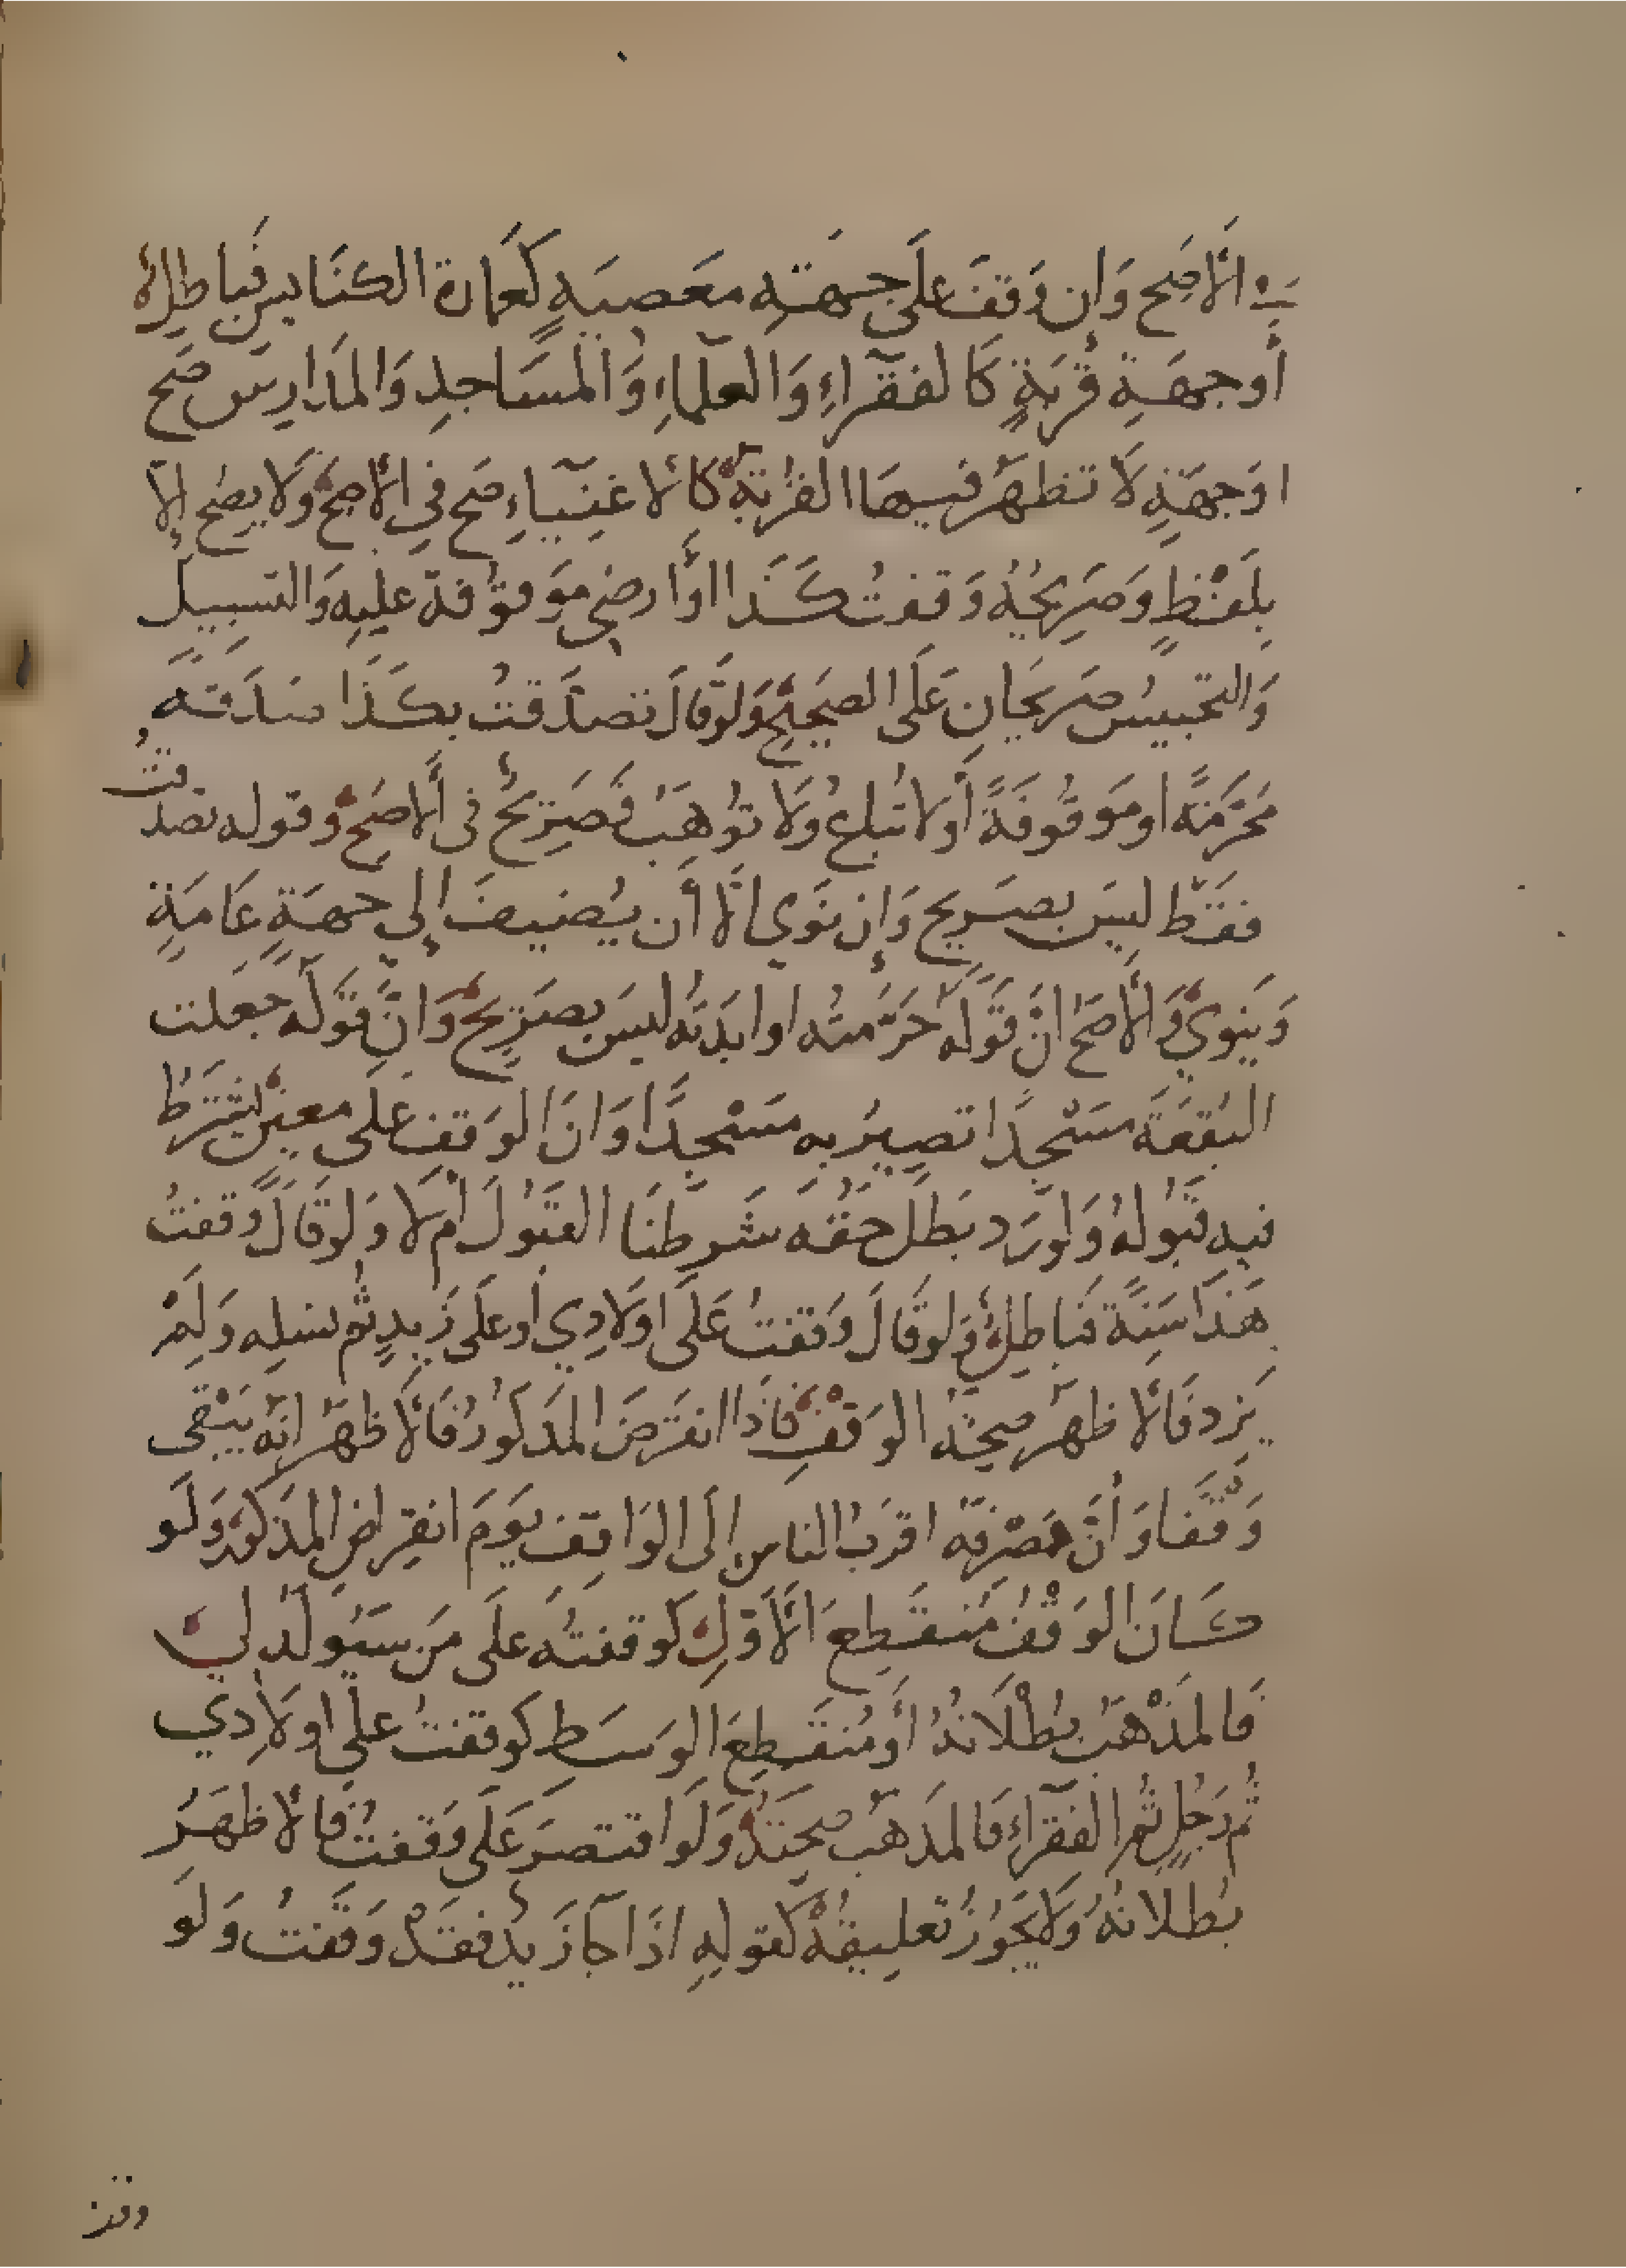 في الأصح وَإن وَقفَ عَلَى جهَةِ معَصيَةٍ كَعمارة الكنَايس فبَاطِلٌ
أَو جهَةِ قُربَةٍ كَالفقرَآءِ وَالعلماءِ وَالمسَاجدِ وَالمدَارِس صَح
اوجهَةٍ لَا تظهَر فيهَا القُربَةُ كالاغنيَآءِ صَح في الأصح وَلَا يصح إلا
بلَفظٍ وَصَريحُهُ وَقفتُ كَذَا اوأَرضِي موَقوُفة عليهِ وَالتسبيل
وَالتحبيسُ صَريحَانِ عَلَى الصَحيح وَلوَقال تَصَدَّقتُ بكَذَا صَدَقة
مُحَرَّمَةً او موَقُوفَةً أَو لا تُباع وَلَا توُهَبُ فَصَريحٌ في الأصَح وَقوله تصد
قتُ
فقَط ليسَ بصَريح وَإن نوَى إلَّا أَن يُضيفَ إلى جهَةٍ عَامَةٍ
وَينوي وَالأصَح انَّ قوَلَهُ حَرَّمتُه اوابَدَتهُ ليسَ بصَريحٍ وَانَّ قوَلَه جَعَلت
البُقعَة مَسْجدًا تصيرُ بهِ مَسْجدًا وَانَ الوَقف عَلى معين يُشتَرَطُ
فيه قبَوُلهُ وَلورَد بَطل حَقهُ شَرطنَا القبَوُلَ أم لَا وَلوقَالَ وَقفتُ
هَذَا سَنةً فبَاطِلٌ وَلوقَالَ وَقفتُ عَلَى اولَادِي أو عَلَى زَيدٍ ثُم نسلِه وَلَمْ
يَزد فَالاظهَر صِحّتهُ الوَقفِ فَاذَا انقرَضَ المذَكوُرُ فَالاظهَر انهُ يَبْقى
وَقفًا وَأنَّ مَصْرفَه اقرَبُ الناس إلَى الوَاقِف يوَمَ انقِرَاض المذَكورِ وَلَو
كَانَ الوَقْفُ مُنقَطِعَ الأوَّلِ كوَقفتُه عَلَى مَن سَيُولَدُ لي
فَالمذْهَبُ بُطْلَانهُ أَو مُنقَطِعَ الوَسَطِ كوَقفتُ عَلَى اولَادي
ثُم رَجُلٍ ثُم الفقَرآءِ فَالمذَهَب صِحَتهُ وَلَو اقتصَرَ عَلَى وَقفتُ فَالاظهَرُ
بُطلانهُ وَلَا يَجُوزُ تعليقُهُ كقوَلهِ اذَا جآ زَيدٌ فقَدْ وَقفتُ وَلَو